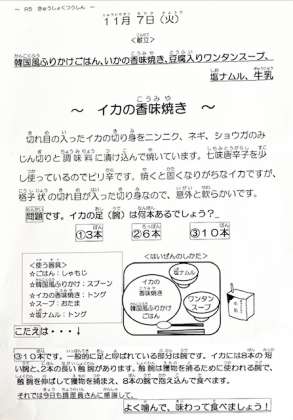 ～ R5 きゅうしょくつうしん ～
11月 7日(火)
<献立>
韓国風ふりかけごはん、いかの香味焼き、豆腐入りワンタンスープ、
塩ナムル、牛乳
～ イカの香味焼き ～
切れ目の入ったイカの切り身をニンニク、ネギ、ショウガのみ
じん切りと調味料に漬け込んで焼いています。七味唐辛子を少
し使っているのでピリ辛です。焼くと固くなりがちなイカですが、
格子状の切れ目が入った切り身なので、意外と軟らかいです。
問題です。イカの足(腕)は何本あるでしょう?
①3本 ②6本 ③10本
<使う器具>
☆ごはん:しゃもじ
☆韓国風ふりかけ:スプーン
☆イカの香味焼き:トング
☆スープ:おたま
☆塩ナムル:トング
<はいぜんのしかた>
イカの
香味焼き
塩
ナムル
韓国風ふりかけ
ごはん
ワンタン
スープ
こたえは・・・↓
③10本です。一般的に足と呼ばれている部分は腕です。イカには8本の短
い腕と、2本の長い触腕があります。触腕は獲物を捕るために使われる腕で、
触腕を伸ばして獲物を捕まえ、8本の腕で抱え込んで食べます。
それでは今日も調理員さんに感謝して、
よく噛んで、味わって食べましょう!